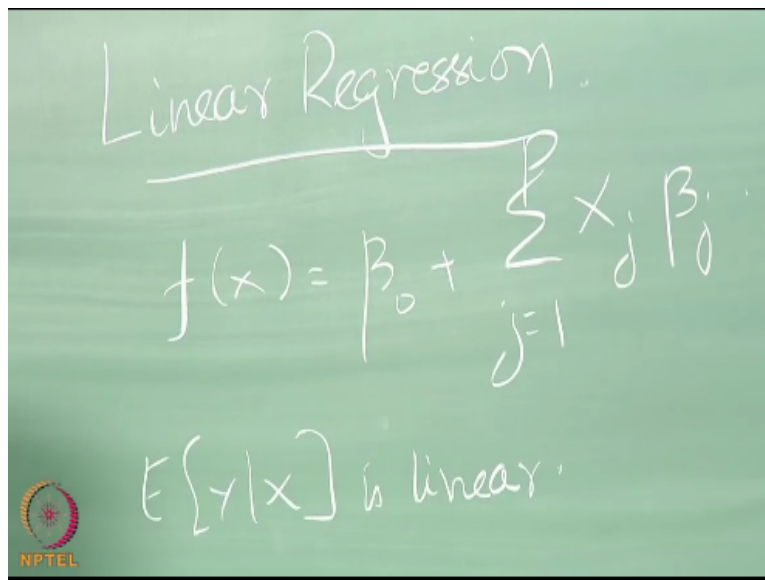 Linear Regression.
f(x) = β₀ + Σ_{j=1}^{p} X_j β_j.
E[Y|X] is linear.
NPTEL